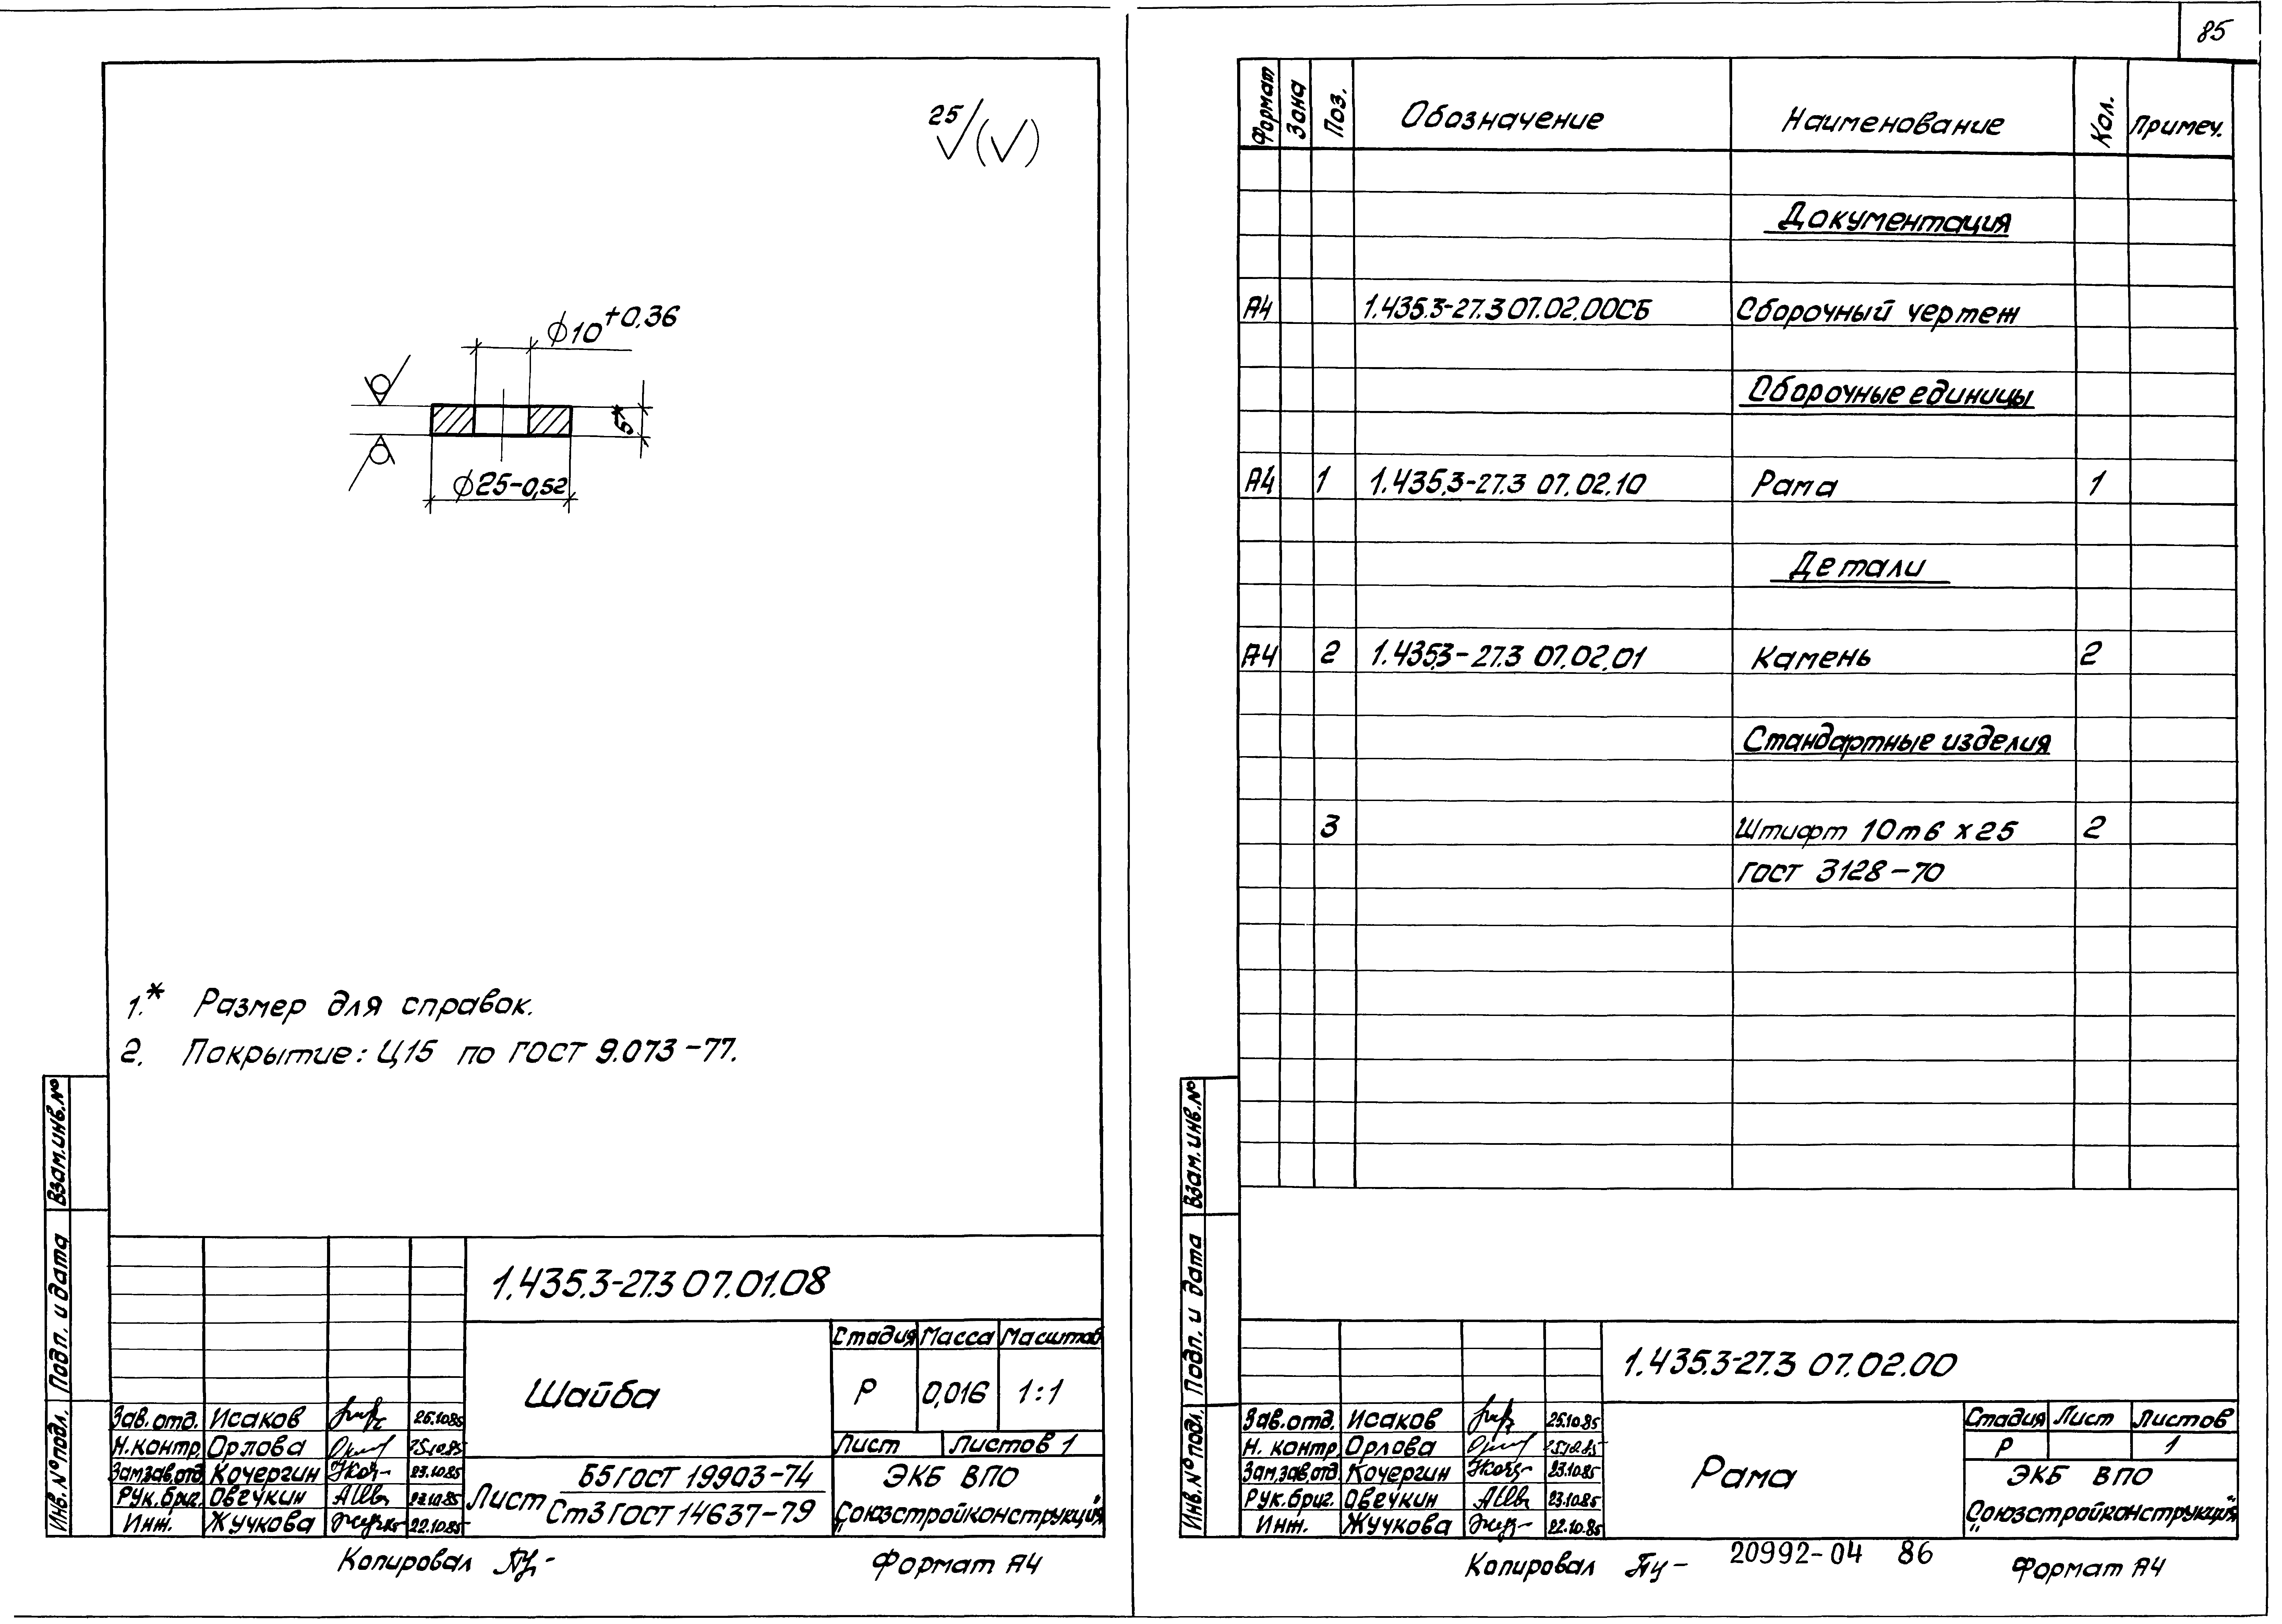 25
(√)
ϕ10+0,36
5*
ϕ25-0,52
1.* Размер для справок.
2. Покрытие: Ц15 по ГОСТ 9.073-77.
Взам.инв.№
Подп. и дата
Инв.№подл.
1.435.3-27.3 07.01.08
Шайба
Стадия Масса Масштаб
Р 0,016 1:1
Лист Листов 1
Зав.отд. Исаков 25.10.85
Н.контр. Орлова 25.10.85
Зам.зав.отд. Кочергин 23.10.85
Рук.бриг. Овечкин 23.10.85
Инж. Жучкова 22.10.85
Лист Б5 ГОСТ 19903-74
Ст3 ГОСТ 14637-79
ЭКБ ВПО
"Союзстройконструкция"
Копировал
Формат А4
85
Формат Зона Поз. Обозначение Наименование Кол. Примеч.
Документация
А4 1.435.3-27.3 07.02.00СБ Сборочный чертеж
Сборочные единицы
А4 1 1.435.3-27.3 07.02.10 Рама 1
Детали
А4 2 1.435.3-27.3 07.02.01 Камень 2
Стандартные изделия
3 Штифт 10m6 x 25 2
ГОСТ 3128-70
Взам.инв.№
Подп. и дата
Инв.№подл.
1.435.3-27.3 07.02.00
Зав.отд. Исаков 25.10.85
Н. контр. Орлова 25.10.85
Зам.зав.отд. Кочергин 23.10.85
Рук.бриг. Овечкин 23.10.85
Инж. Жучкова 22.10.85
Рама
Стадия Лист Листов
Р 1
ЭКБ ВПО
"Союзстройконструкция"
Копировал
20992-04 86
Формат А4